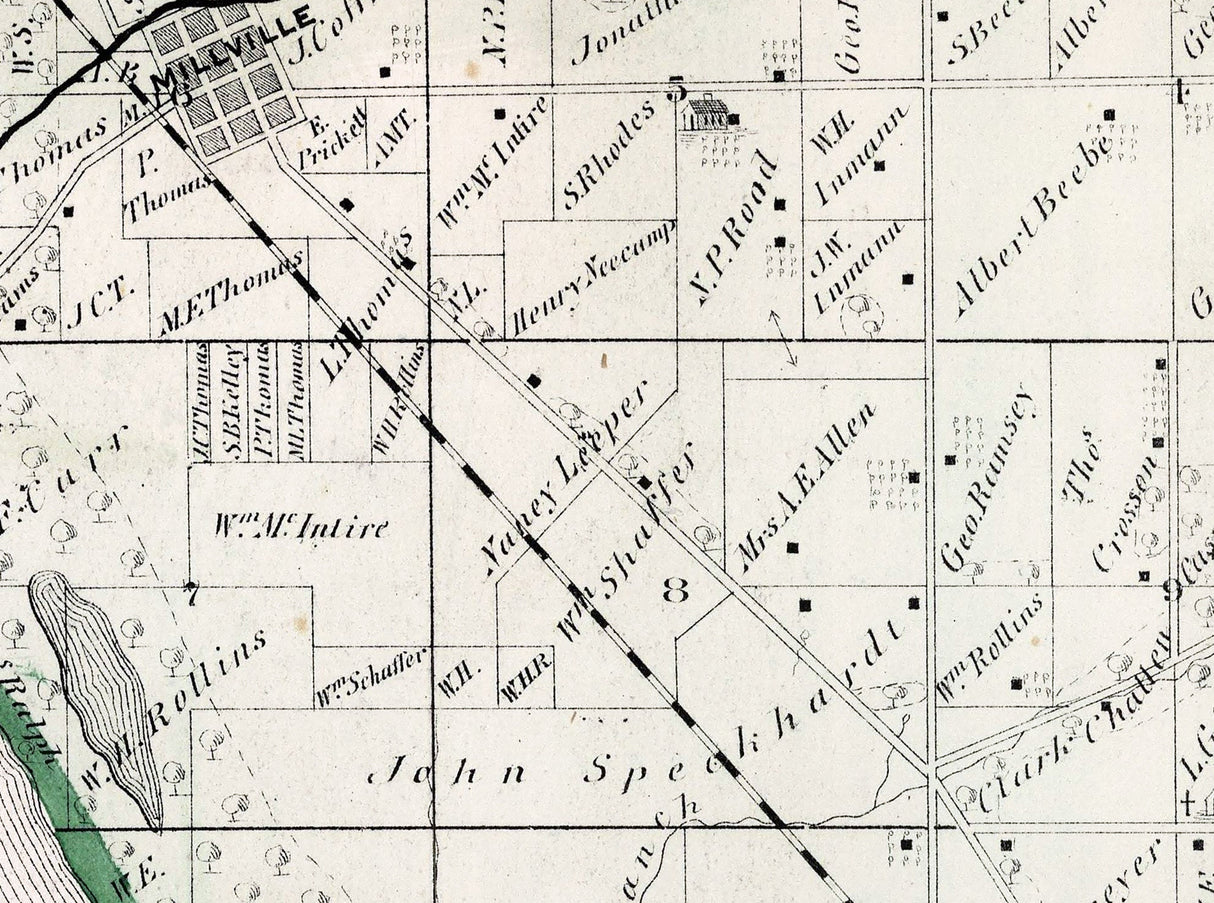 W.S.
MILLVILLE
N.P.
Geo.
S.Bee
Alber
Ge
5
4
M.
Thomas
P.
Thomas
E.
Prickett
A.M.T.
Wm. Mc Intire
S.Rhodes
N.P.Road
W.H.
Inmann
Albert Beebe
J.W.
Inmann
J.C.T.
M.E.Thomas
L.Thomas
N.L.
Henry Neecamp
G
J.C.Thomas
S.B.Kelley
P.Thomas
M.L.Thomas
W.H.Rollins
Nancy Leeper
Wm. Shaffer
Mrs.A.E.Allen
Geo.Ramsey
Thos.
Crossen
Wm. Mc. Intire
7
8
9
Cas
W.H.Rollins
Wm. Schaffer
W.H.
W.H.R.
Wm. Rollins
Ralph
John Speckhardt
Clark Chatten
L.G
anch
W.E.
eyer